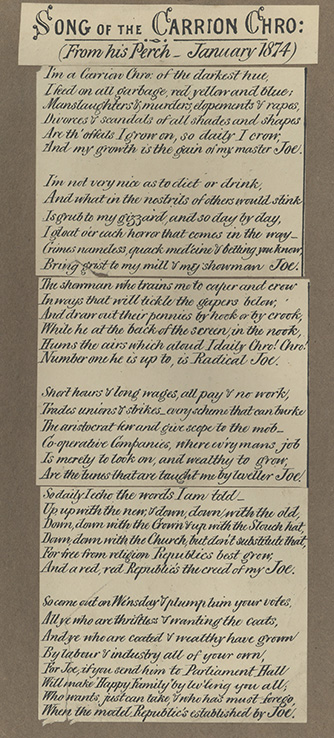 SONG OF THE CARRION CHRO:
(From his Perch - January 1874)
I'm a Carrion Chro: of the darkest hue,
I feed on all garbage, red, yellow and blue;
Manslaughters & murders, elopements & rapes,
Divorces & scandals of all shades and shapes
Are th' offals I grow on, so daily I crow,
And my growth is the gain of my master Joe.
I'm not very nice as to diet or drink,
And what in the nostrils of others would stink
Is grub to my gizzard, and so day by day,
I gloat o'er each horror that comes in the way_
Crimes nameless, quack medicine & betting, you know,
Bring grist to my mill & my showman Joe.
The showman who trains me to caper and crow
In ways that will tickle the gapers below,
And draw out their pennies by hook or by crook,
While he at the back of the screen, in the nook,
Hums the airs which aloud I daily Chro! Chro!
Number one he is up to, is Radical Joe.
Short hours & long wages, all pay & no work,
Trades unions & strikes_ every scheme that can burke
The aristocrat few and give scope to the mob_
Co-operative Companies, where ev'ry mans job
Is merely to look on, and wealthy to grow,
Are the tunes that are taught me by leveller Joe!
So daily I echo the words I am told_
Up, up with the new, & down, down with the old,
Down, down with the Crown & up with the Slouch hat,
Down, down with the Church, but don't substitute that,
For free from religion Republic's best grow,
And a red, red Republic's the creed of my Joe.
So come out on Wensday & plump him your votes,
All ye who are thriftless & wanting the coats,
And ye who are coated & wealthy have grown
By labour & industry all of your own,
For Joe, if you send him to Parliament Hall
Will make Happy Family by lev'ling you all,
Who wants, just can take, & who has must forego
Where the model Republic's established by Joe.